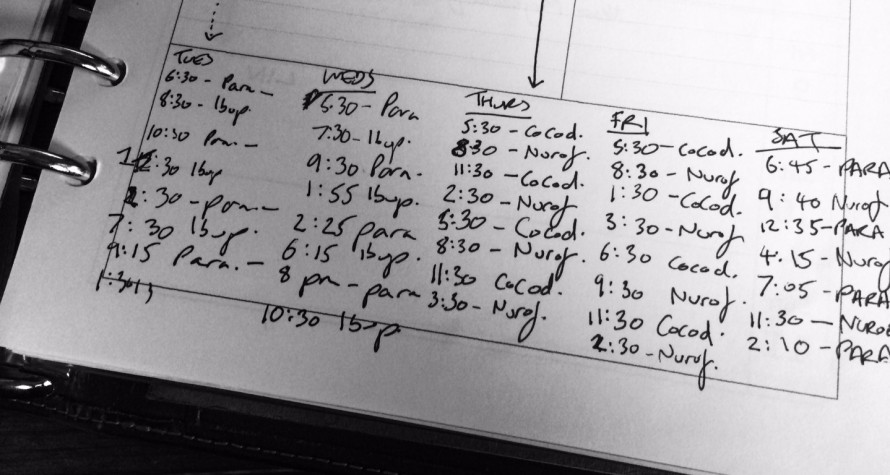 TUES
6:30 - Para -
8:30 - Ibup.
10:30 Para -
12:30 Ibup
2:30 - para -
7:30 Ibup.
9:15 Para. -
WEDS
5:30 - Para
7:30 - Ibup.
9:30 Para.
1:55 Ibup.
2:25 para
6:15 Ibup.
8 pm - para
10:30 Ibup
THURS
5:30 - Cocod.
8:30 - Nurof.
11:30 - Cocod.
2:30 - Nurof
5:30 - Cocod.
8:30 - Nurof.
11:30 Cocod.
3:30 - Nurof.
FRI
5:30 - Cocod.
8:30 - Nurof
1:30 - Cocod.
3:30 - Nurof
6:30 Cocod.
9:30 Nurof.
11:30 Cocod.
2:30 - Nurof.
SAT
6:45 - PARA
9:40 Nurof
12:35 - PARA
4.15 - Nurof
7:05 - PARA
11:30 - NUROF
2:10 - PARA